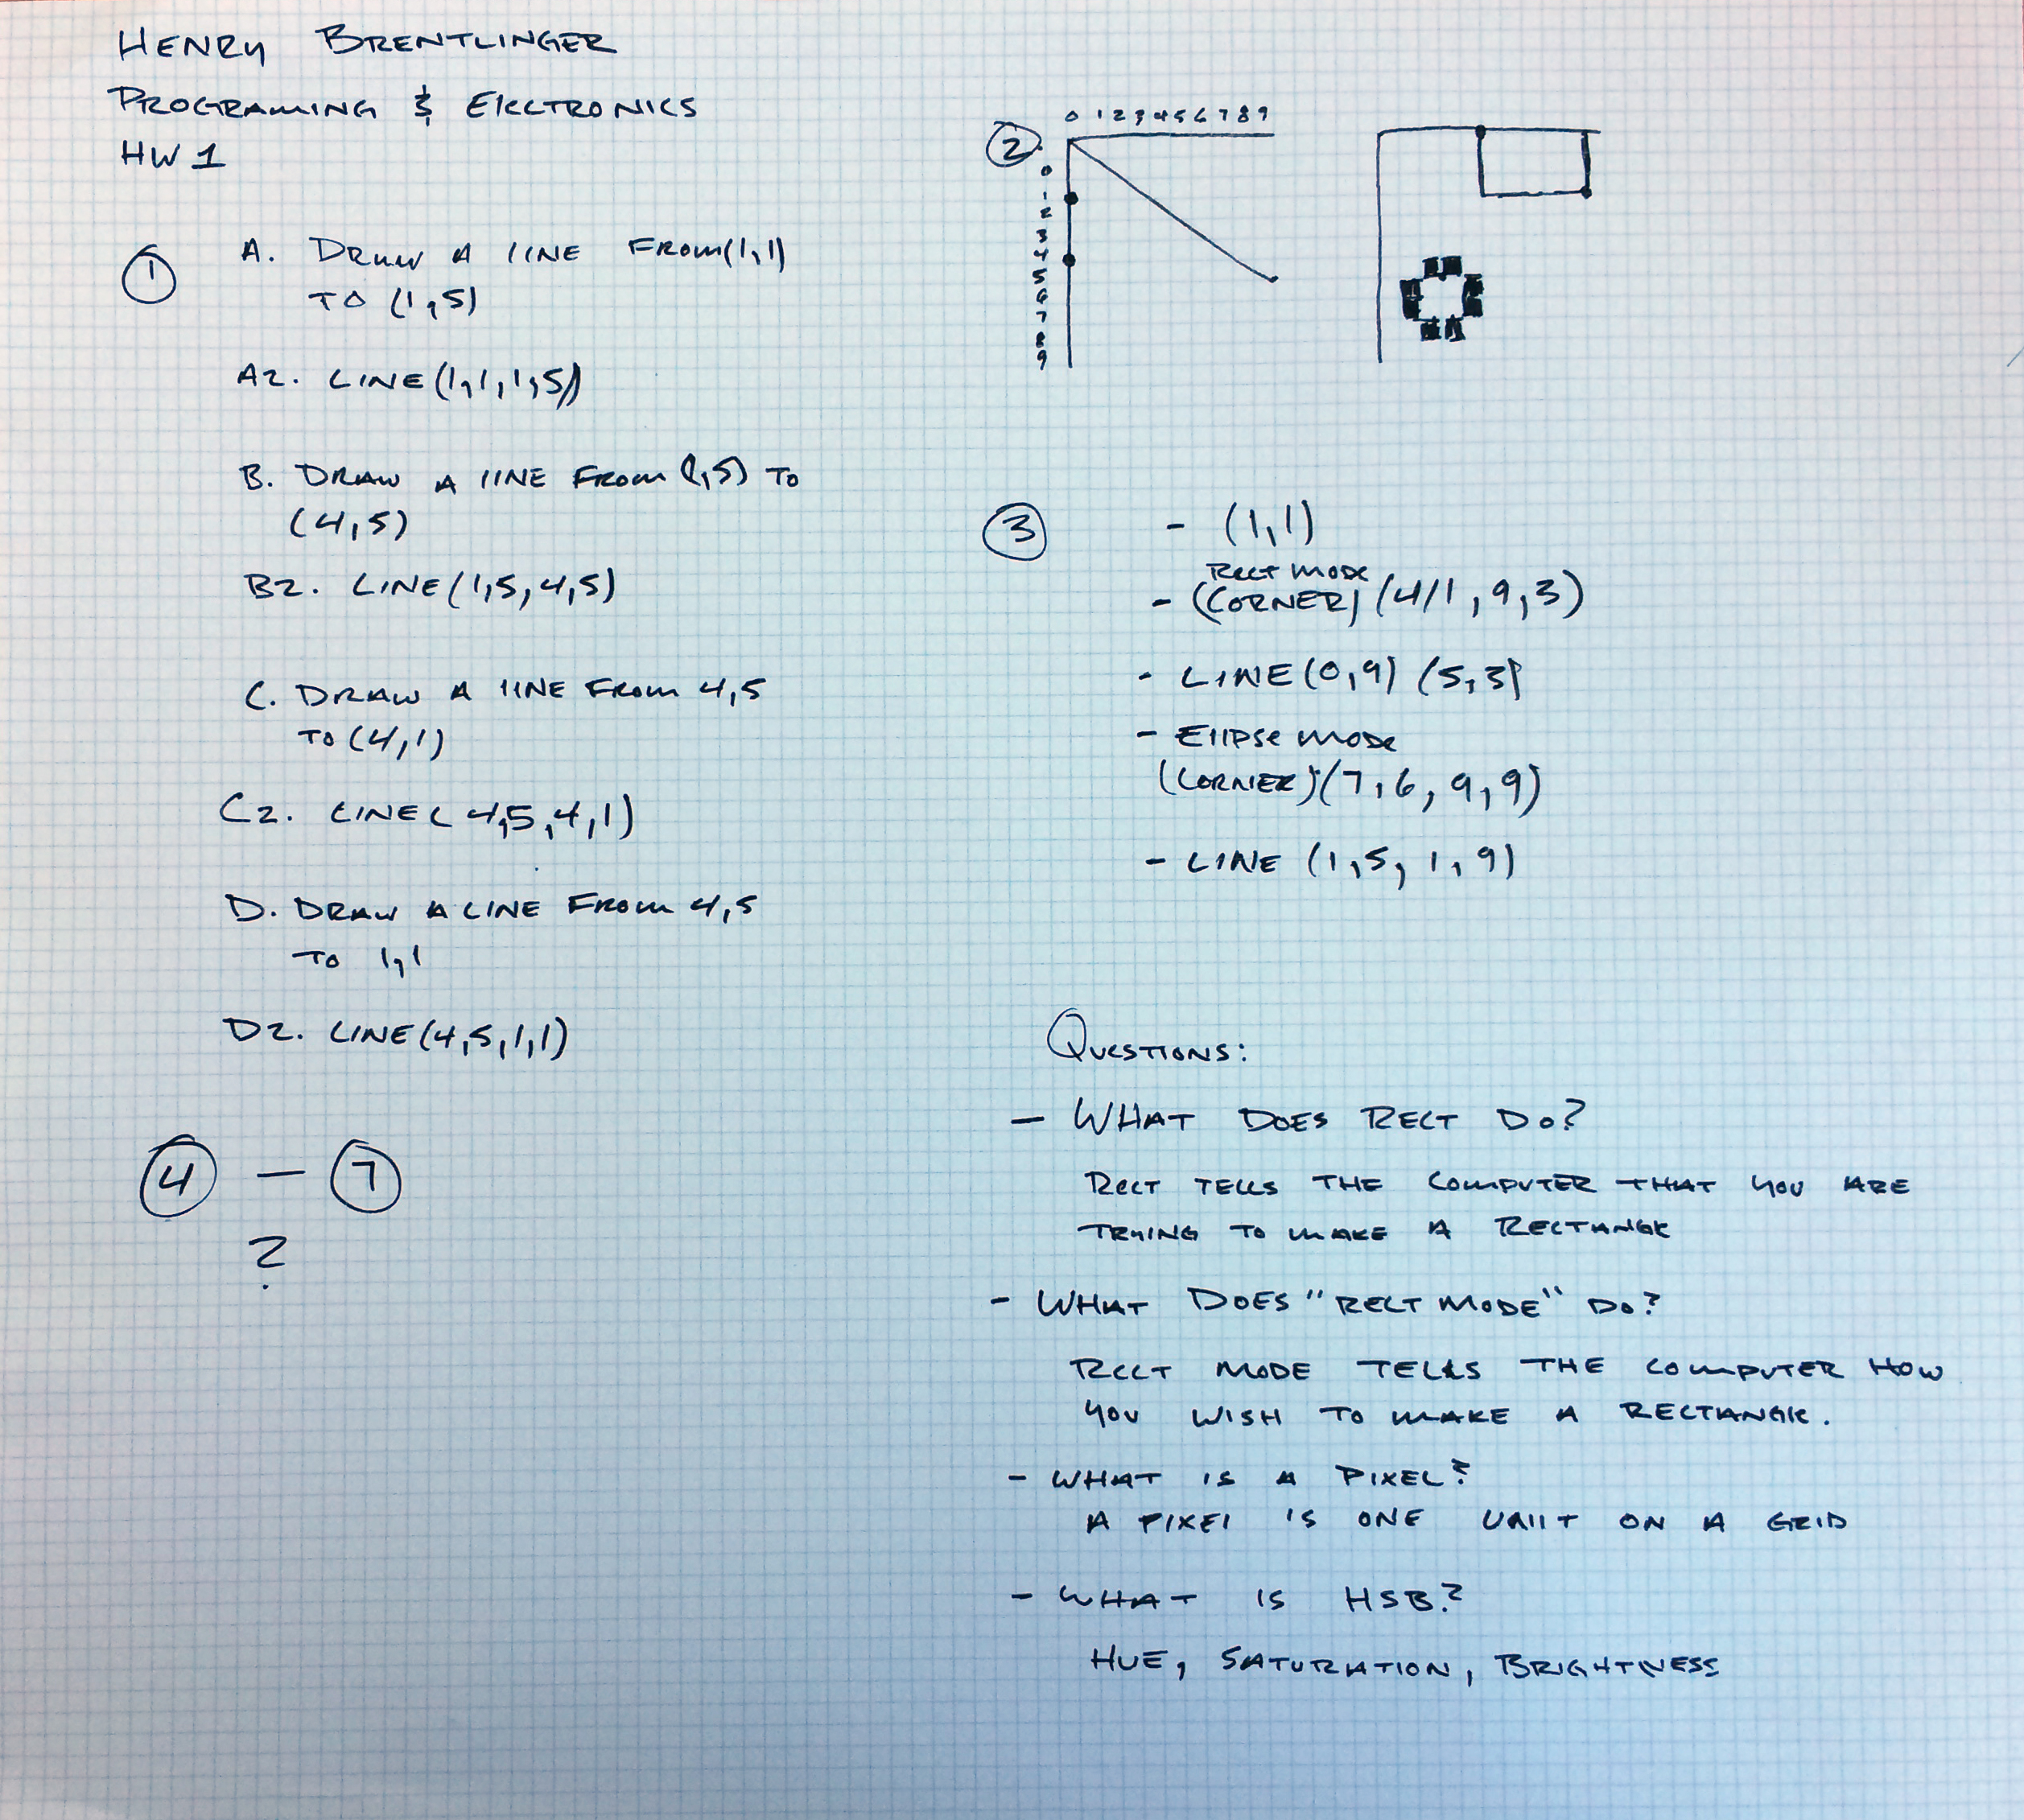 HENRY BRENTLINGER
PROGRAMING & ElECTRONICS
HW 1
①
A. DRAW A lINE FROM(1,1)
TO (1,5)
A2. LINE(1,1,1,5)
B. DRAW A lINE FROM (1,5) TO
(4,5)
B2. LINE(1,5,4,5)
C. DRAW A lINE FROM 4,5
TO (4,1)
C2. LINE( 4,5,4,1)
D. DRAW A LINE FROM 4,5
TO 1,1
D2. LINE(4,5,1,1)
④ — ⑦
?
②
0 1 2 3 4 5 6 7 8 9
0
1
2
3
4
5
6
7
8
9
③
- (1,1)
RECT MODE
- (CORNER) (4/1, 9, 3)
- LINE(0,9) (5,3)
- EllPSE MODE
(CORNER)(7,6, 9,9)
- LINE (1,5, 1,9)
QUESTIONS:
— WHAT DOES RECT DO?
RECT TELLS THE COMPUTER THAT YOU ARE
TRYING TO MAKE A RECTANGlE
- WHAT DOES "RECT MODE" DO?
RECT MODE TELLS THE COMPUTER HOW
YOU WISH TO MAKE A RECTANGlE.
- WHAT IS A PIXEL?
A PIXEl IS ONE UNIT ON A GRID
- WHAT IS HSB?
HUE, SATURATION, BRIGHTNESS